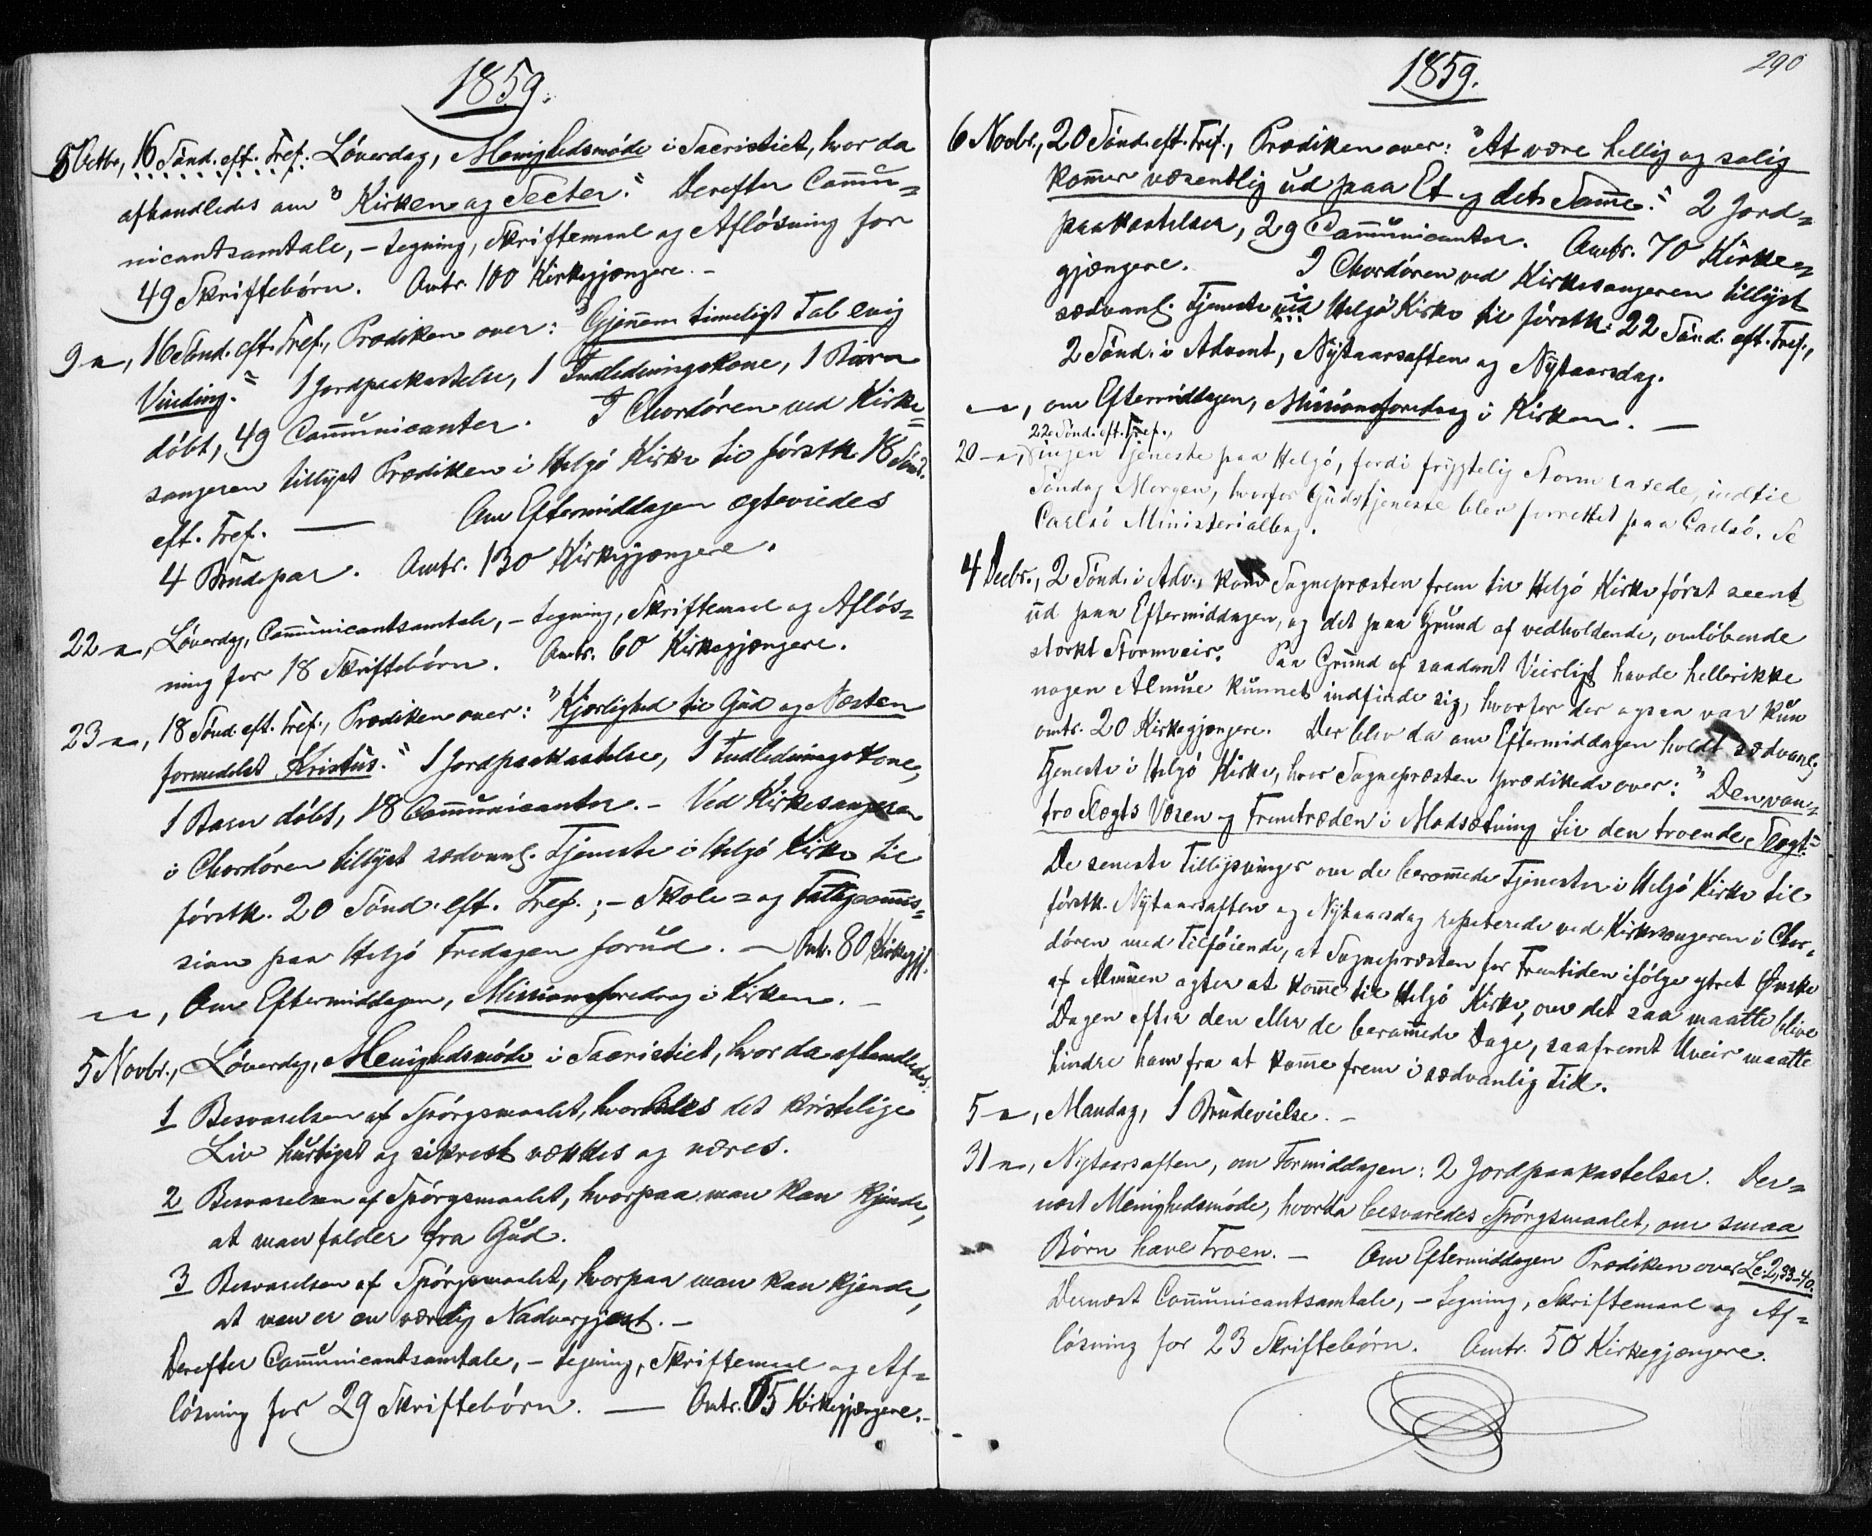 1859.
8 Octbr., 16 Sønd. eft. Tref. Løverdag, Menighedsmøde i Sacristiet, hvor da
afhandledes om "Kirken og Secter." Derefter Com̄u-
nicantsamtale, - tegning, Skriftemaal og Afløsning for
49 Skriftebørn. Omtr. 100 Kirkegjængere. -
9 –, 16 Sønd. eft. Tref., Prædiken over: "Gjennem timeligt Tab evig
Vinding." 1 Jordpaakastelse, 1 Indledningskone, 1 Barn
døbt, 49 Com̄unicanter. I Chordøren ved Kirke-
sangeren tillyst Prædiken i Helgø Kirke til førstk. 18 Sønd.
eft. Tref. — Om Eftermiddagen ægteviedes
4 Brudepar. Omtr. 130 Kirkegjængere.
22 –, Løverdag, Com̄unicantsamtale, - tegning, Skriftemaal og Afløs-
ning for 18 Skriftebørn. Omtr. 60 Kirkegjængere.
23 –, 18 Sønd. eft. Tref., Prædiken over: "Kjærlighed til Gud og Næsten
formedelst Kristus." 1 Jordpaakastelse, 1 Indledningskone,
1 Barn døbt, 18 Com̄unicanter. - Ved Kirkesangeren
i Chordøren tillyst sædvanl. Tjeneste i Helgø Kirke til
førstk. 20 Sønd. eft. Tref.; - Skole- og Fattigcom̄is-
sion paa Helgø Fredagen forud. — Omtr. 80 Kirkegjg.
– –, Om Eftermiddagen, Missionsforedrag i Kirken. -
5 Novbr., Løverdag, Menighedsmøde i Sacristiet, hvor da afhandledes:
1 Besvarelsen af Spørgsmaalet, hvorledes det kristelige
Liv hurtigst og sikrest vækkes og næres.
2 Besvarelsen af Spørgsmaalet, hvorpaa man kan kjende,
at man falder fra Gud.
3 Besvarelsen af Spørgsmaalet, hvorpaa man kan kjende,
at man er en værdig Nadvergjæst. -
Derefter Com̄unicantsamtale, - tegning, Skriftemaal og Af-
løsning for 29 Skriftebørn. — Omtr. 65 Kirkegjængere. -
290
1859.
6 Novbr., 20 Sønd. eft. Tref., Prædiken over: "At være hellig og salig
kom̄er væsentlig ud paa Et og det Sam̄e." 2 Jord-
paakastelser, 29 Com̄unicanter. Omtr. 70 Kirke-
gjængere. I Chordøren ved Kirkesangeren tillyst
sædvanl. Tjeneste ved Helgø Kirke til førstk. 22 Sønd. eft. Tref.,
2 Sønd. i Advent, Nytaarsaften og Nytaarsdag.
– –, om Eftermiddagen, Missionsforedrag i Kirken. —
22 Sønd. eft. Tref.,
20 –, ingen Tjeneste paa Helgø, fordi frygtelig Storm rasede indtil
Søndag Morgen, hvorfor Gudstjeneste blev forrettet paa Carlsø. Se
Carlsø Ministerialbog.
4 Decbr., 2 Sønd. i Adv., kom Sognepræsten frem til Helgø Kirke først seent
ud paa Eftermiddagen, og det paa Grund af vedholdende, omløbende
stærkt Stormveir. Paa Grund af saadant Veirligt havde heller ikke
nogen Almue kunnet indfinde sig, hvorfor der ogsaa var kun
omtr. 20 Kirkegjængere. Der blev da om Eftermiddagen holdt sædvanlig
Tjeneste i Helgø Kirke, hvor Sognepræsten prædikede over: "Den van-
tro Slægts Væsen og Fremtræden i Modsætning til den troende Slægt."
De seneste Tillysninger om de beram̄ede Tjenester i Helgø Kirke til
førstk. Nytaarsaften og Nytaarsdag repeterede ved Kirkesangeren i Chor-
døren med Tilføiende, at Sognepræsten for Fremtiden ifølge ytret Ønske
af Almuen agter at kom̄e til Helgø Kirke, om det saa maatte blive
Dagen efter den eller de beram̄ede Dage, saafremt Uveir maatte
hindre ham fra at kom̄e frem i sædvanlig Tid.
5 –, Mandag, 1 Brudevielse. -
31 –, Nytaarsaften, om Formiddagen: 2 Jordpaakastelser. Der-
næst Menighedsmøde, hvor da besvaredes Spørgsmaalet, om smaa
Børn have Troen. - Om Eftermiddagen Prædiken over Lc. 2, 33-40.
Dernæst Com̄unicantsamtale, - tegning, Skriftemaal og Af-
løsning for 23 Skriftebørn. Omtr. 50 Kirkegjængere.